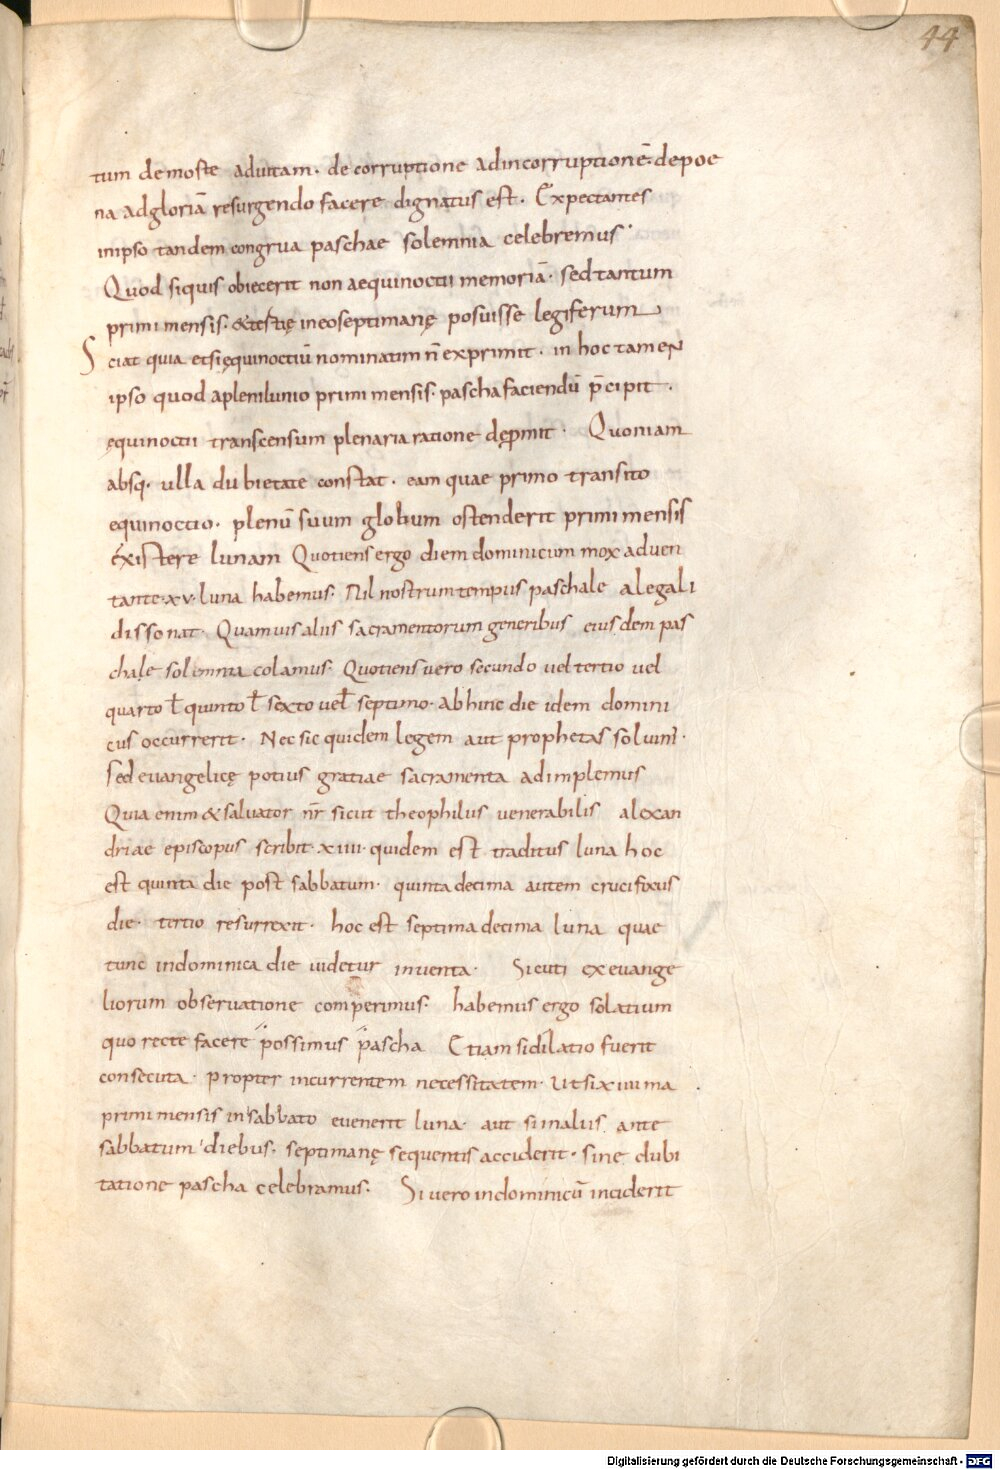 44
tum de morte aduitam· de corruptione adincorruptionē· depoe
na adgloriā resurgendo facere dignatus est· Expectantes
inipso tandem congrua paschae solemnia celebremus·
Quod siquis obiecerit non aequinoctii memoriā· sed tantum
primi mensis· &tertię ineoseptimanę posuisse legiferum
Sciat quia etsięquinoctiū nominatim n̄ exprimit· in hoc tamen
ipso quod aplenilunio primi mensis· pascha faciendū p̄cipit·
ęquinoctii transcensum plenaria ratione dępmit· Quoniam
absq· ulla dubietate constat· eam quae primo transito
equinoctio· plenū suum globum ostenderit primi mensis
existere lunam Quotiens ergo diem dominicum mox aduen
tante·xv·luna habemus· Nil nostrum tempus paschale a legali
dissonat· Quamuis aliis sacramentorum generibus eiusdem pas
chale solemnia colamus· Quotiens vero secundo vel tertio vel
quarto ł quinto ł sexto uel septimo· Abhinc die idem domini
cus occurrerit· Nec sic quidem legem aut prophetas soluim̄·
sed euangelicę potius gratiae sacramenta adimplemus
Quia enim & saluator nr̄ sicut theophilus venerabilis alexan
driae episcopus scribit·xiiii·quidem est traditus luna hoc
est quinta die post sabbatum· quinta decima autem crucifixus
die· tertio resurrexit· hoc est septima decima luna quae
tunc indominica die uidetur inuenta· Sicuti ex euange
liorum obseruatione comperimus· habemus ergo solatium
quo recte facere possimus pascha Etiam si dilatio fuerit
consecuta· propter incurrentem necessitatem· Ut si xiiii ma
primi mensis in sabbato euenerit luna· aut si in aliis ante
sabbatum diebus· septimanę sequentis acciderit· sine dubi
tatione pascha celebramus· Si uero in dominicū inciderit
Digitalisierung gefördert durch die Deutsche Forschungsgemeinschaft - DFG